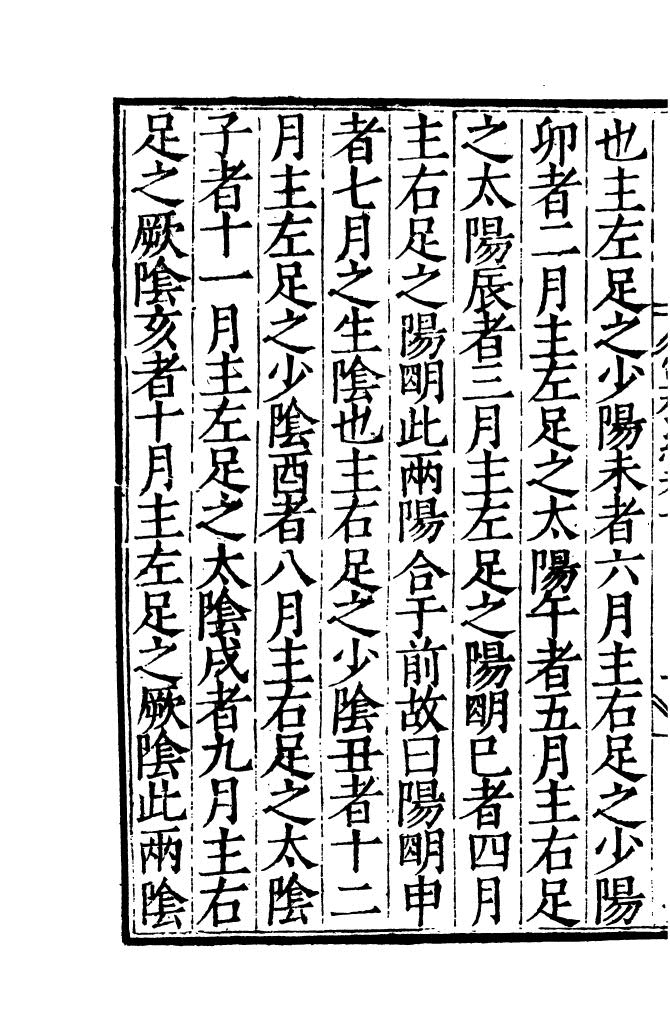 也主左足之少陽未者六月主右足之少陽
卯者二月主左足之太陽午者五月主右足
之太陽辰者三月主左足之陽明巳者四月
主右足之陽明此兩陽合于前故曰陽明申
者七月之生陰也主右足之少陰丑者十二
月主左足之少陰酉者八月主右足之太陰
子者十一月主左足之太陰戌者九月主右
足之厥陰亥者十月主左足之厥陰此兩陰